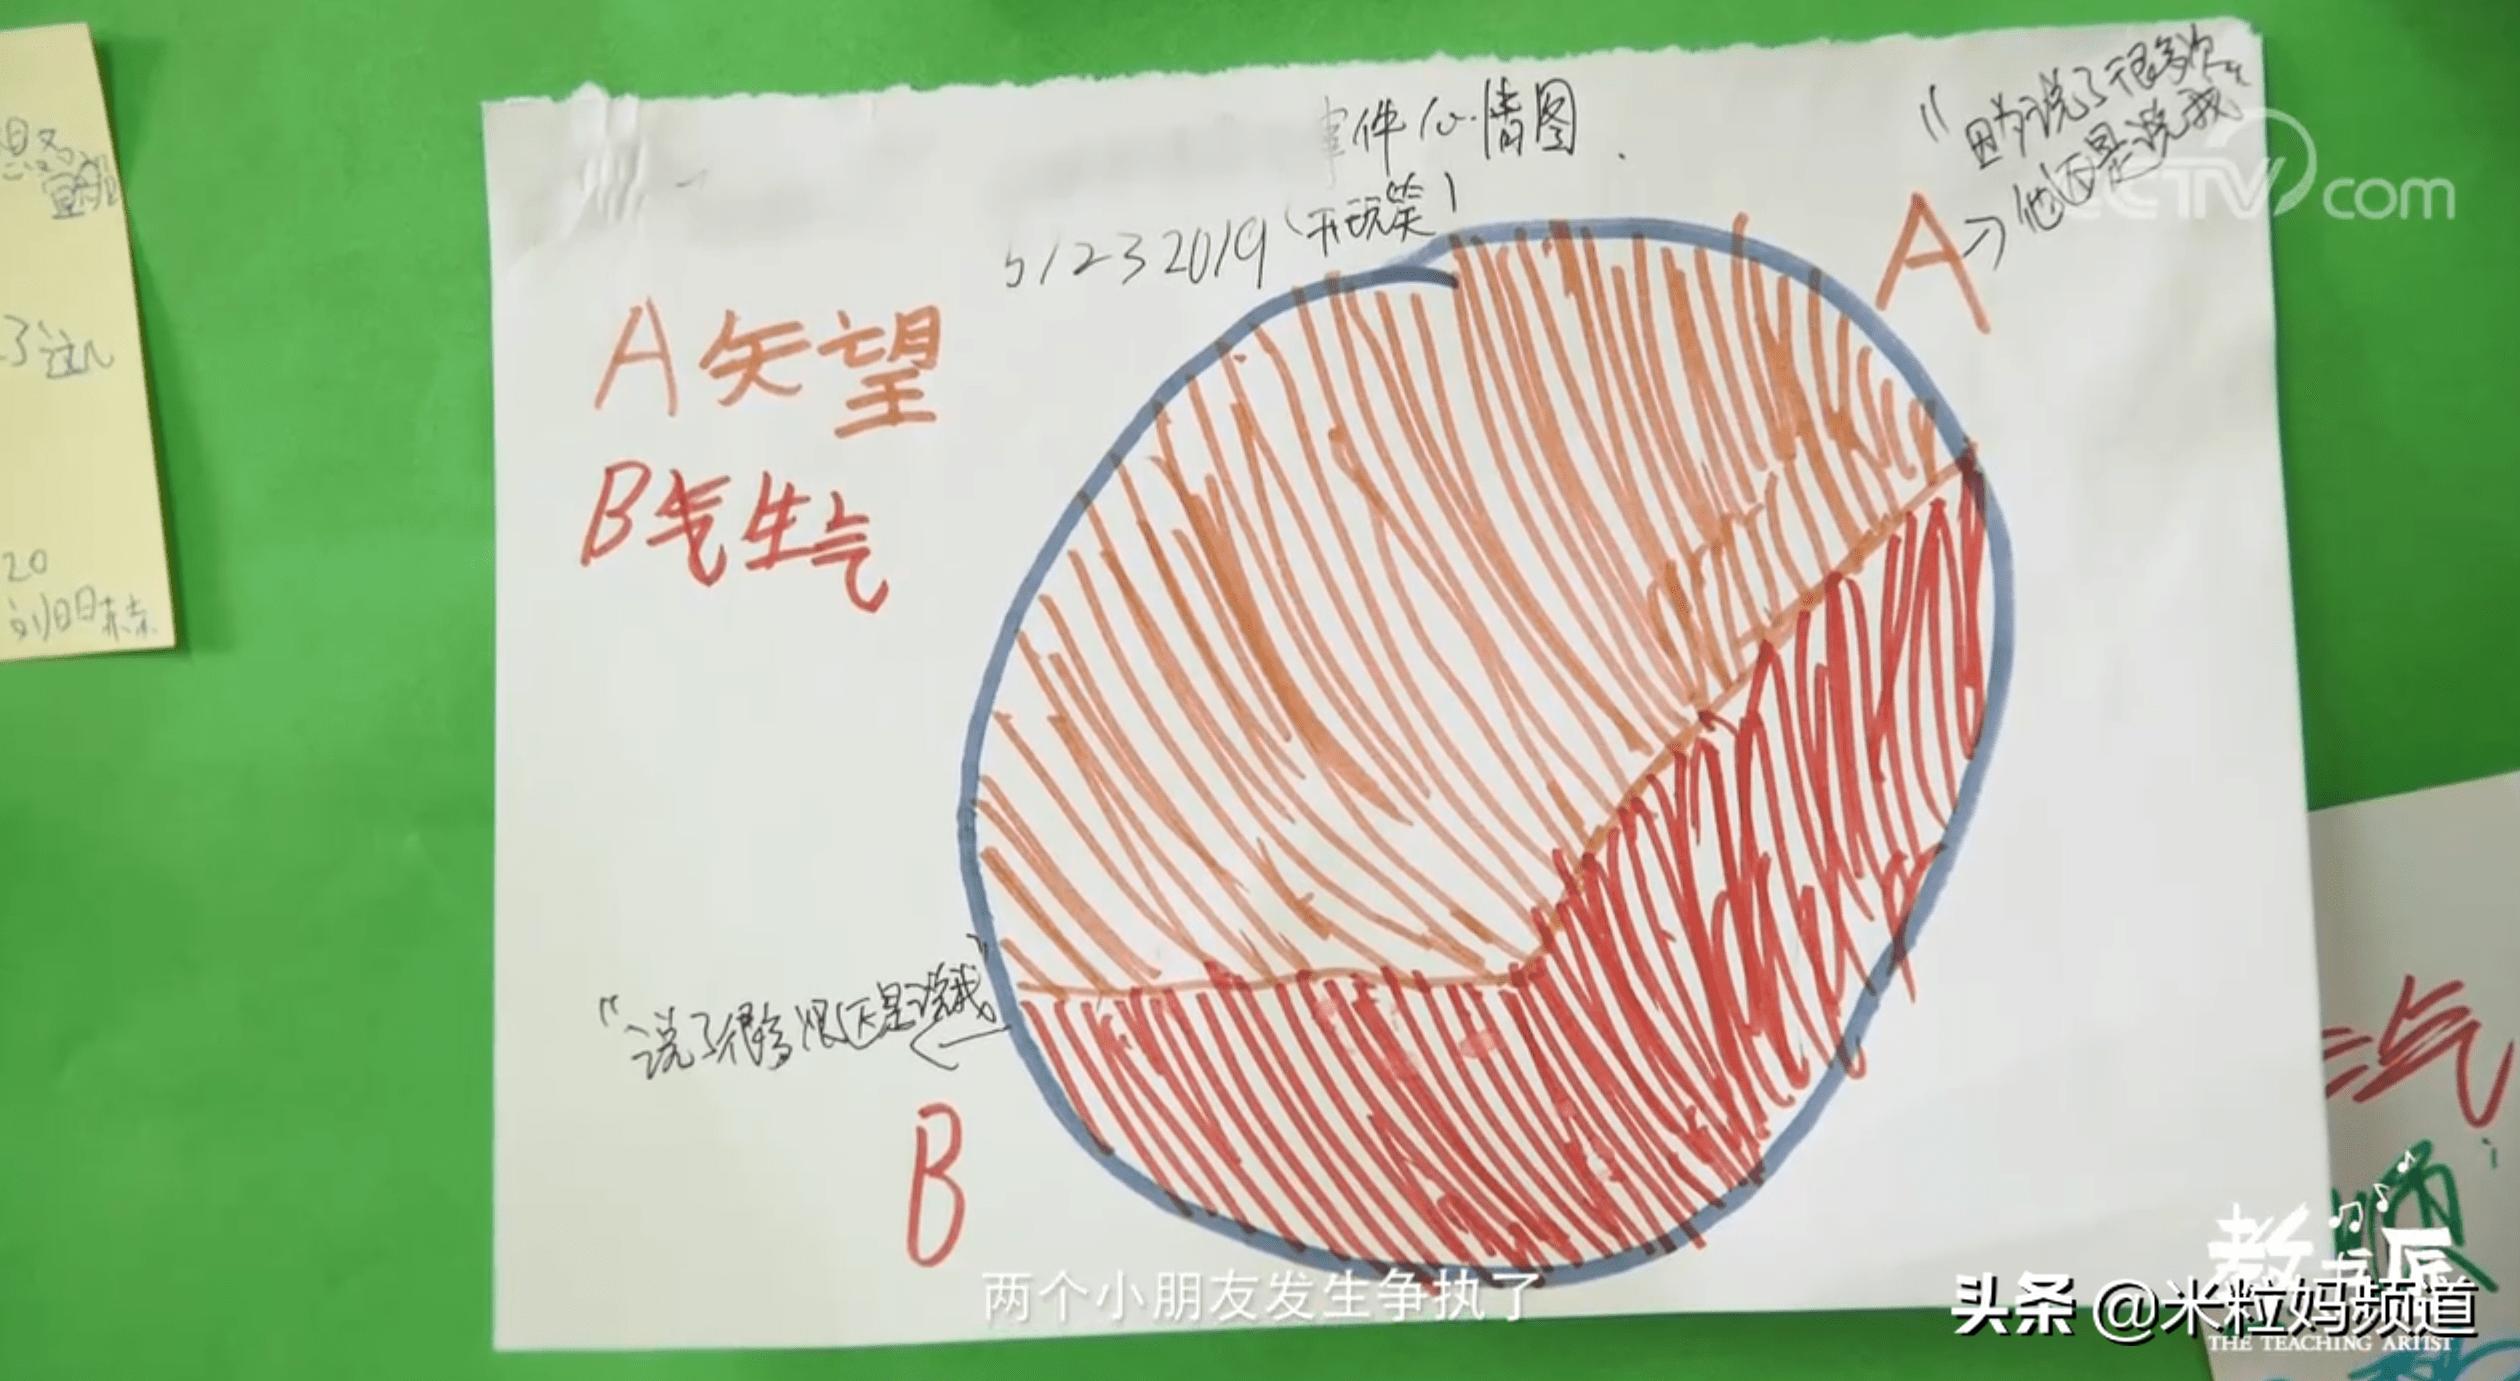 事件心情图.
5/23 2019（开玩笑）
"因为说了很多次
他还是说我"
A
A 失望
B 气生气
"说了很多次还是说我"
B
20
气
CCTV.com
两个小朋友发生争执了
教书匠
THE TEACHING ARTIST
头条 @米粒妈频道